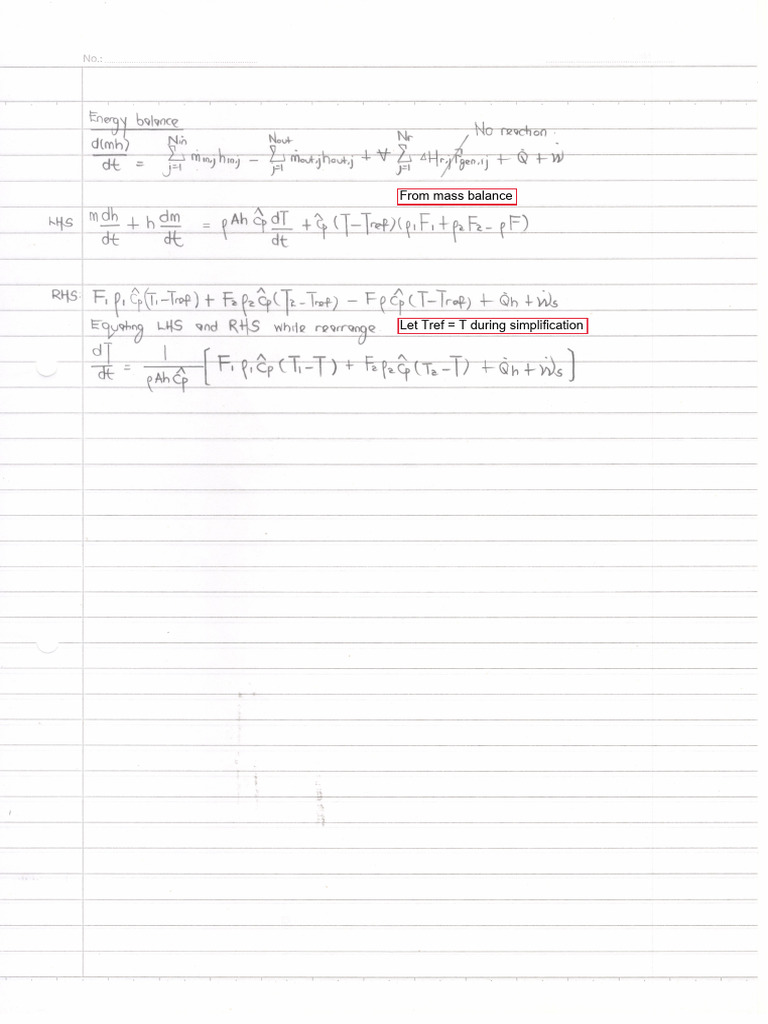 No.:
Energy balance
d(mh)/dt = Σ_{j=1}^{Nin} ṁin,j hin,j − Σ_{j=1}^{Nout} ṁout,j hout,j + ∀ Σ_{j=1}^{Nr} ΔHr,j rgen,ij + Q̇ + Ẇ No reaction
From mass balance
LHS m dh/dt + h dm/dt = ρAh Ĉp dT/dt + Ĉp (T−Tref)(ρ₁F₁+ρ₂F₂−ρF)
RHS: F₁ρ₁Ĉp(T₁−Tref) + F₂ρ₂Ĉp(T₂−Tref) − FρĈp(T−Tref) + Q̇h + Ẇs
Equating LHS and RHS while rearrange. Let Tref = T during simplification
dT/dt = 1/(ρAhĈp) [F₁ρ₁Ĉp(T₁−T) + F₂ρ₂Ĉp(T₂−T) + Q̇h + Ẇs]